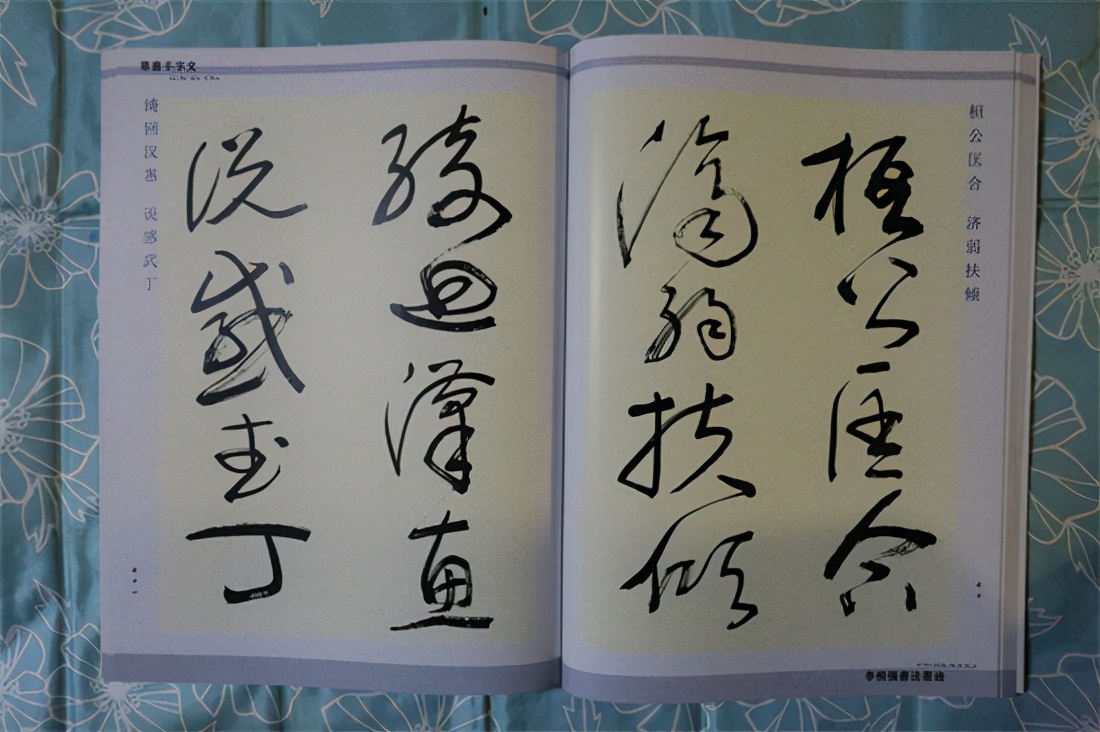 桓公匡合
济弱扶倾
桓公匡合 济弱扶倾
绮回汉惠
说感武丁
绮回汉惠 说感武丁
草书千字文